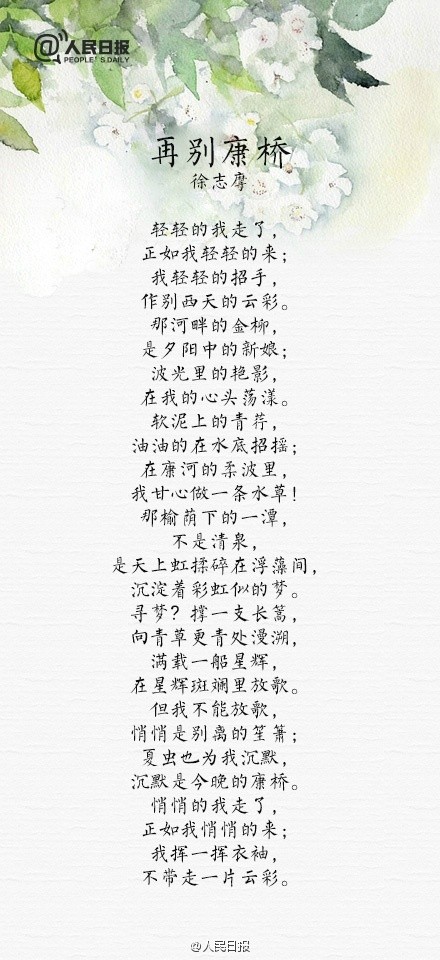 @人民日报
PEOPLE'S DAILY
再别康桥
徐志摩
轻轻的我走了，
正如我轻轻的来；
我轻轻的招手，
作别西天的云彩。
那河畔的金柳，
是夕阳中的新娘；
波光里的艳影，
在我的心头荡漾。
软泥上的青荇，
油油的在水底招摇；
在康河的柔波里，
我甘心做一条水草！
那榆荫下的一潭，
不是清泉，
是天上虹揉碎在浮藻间，
沉淀着彩虹似的梦。
寻梦？撑一支长篙，
向青草更青处漫溯，
满载一船星辉，
在星辉斑斓里放歌。
但我不能放歌，
悄悄是别离的笙箫；
夏虫也为我沉默，
沉默是今晚的康桥。
悄悄的我走了，
正如我悄悄的来；
我挥一挥衣袖，
不带走一片云彩。
@人民日报